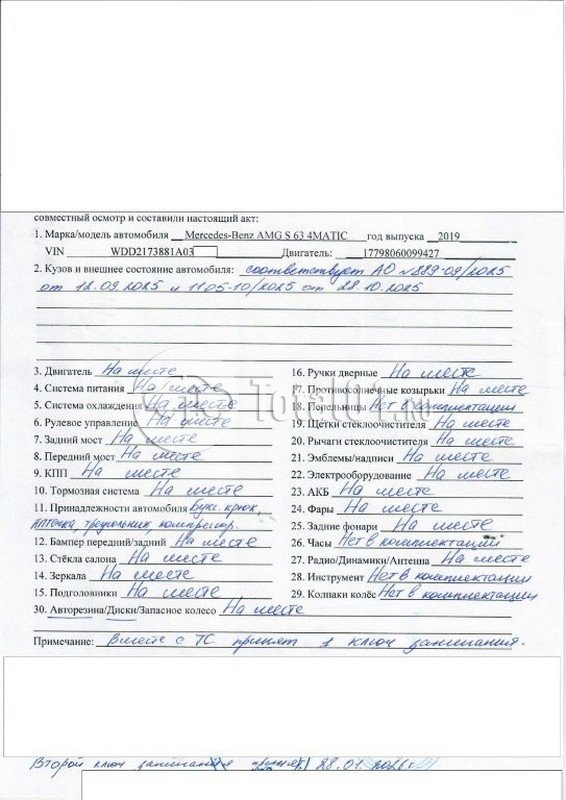 совместный осмотр и составили настоящий акт:
1. Марка/модель автомобиля Mercedes-Benz AMG S 63 4MATIC год выпуска 2019
VIN WDD2173881A03 Двигатель: 17798060099427
2. Кузов и внешнее состояние автомобиля: соответствует АО №889-09/2025
от 12.09.2025 и 1105-10/2025 от 28.10.2025
3. Двигатель На месте
4. Система питания На месте
5. Система охлаждения На месте
6. Рулевое управление На месте
7. Задний мост На месте
8. Передний мост На месте
9. КПП На месте
10. Тормозная система На месте
11. Принадлежности автомобиля Букс. крюк,
аптечка, треугольник, компрессор.
12. Бампер передний/задний На месте
13. Стёкла салона На месте
14. Зеркала На месте
15. Подголовники На месте
16. Ручки дверные На месте
17. Противосолнечные козырьки На месте
18. Пепельницы Нет в комплектации
19. Щетки стеклоочистителя На месте
20. Рычаги стеклоочистителя На месте
21. Эмблемы/надписи На месте
22. Электрооборудование На месте
23. АКБ На месте
24. Фары На месте
25. Задние фонари На месте
26. Часы Нет в комплектации
27. Радио/Динамики/Антенна На месте
28. Инструмент Нет в комплектации
29. Колпаки колёс Нет в комплектации
30. Авторезина/Диски/Запасное колесо На месте
Примечание: Вместе с ТС принят 1 ключ зажигания.
Второй ключ зажигания 28.01.2026 г.
Total01.ru